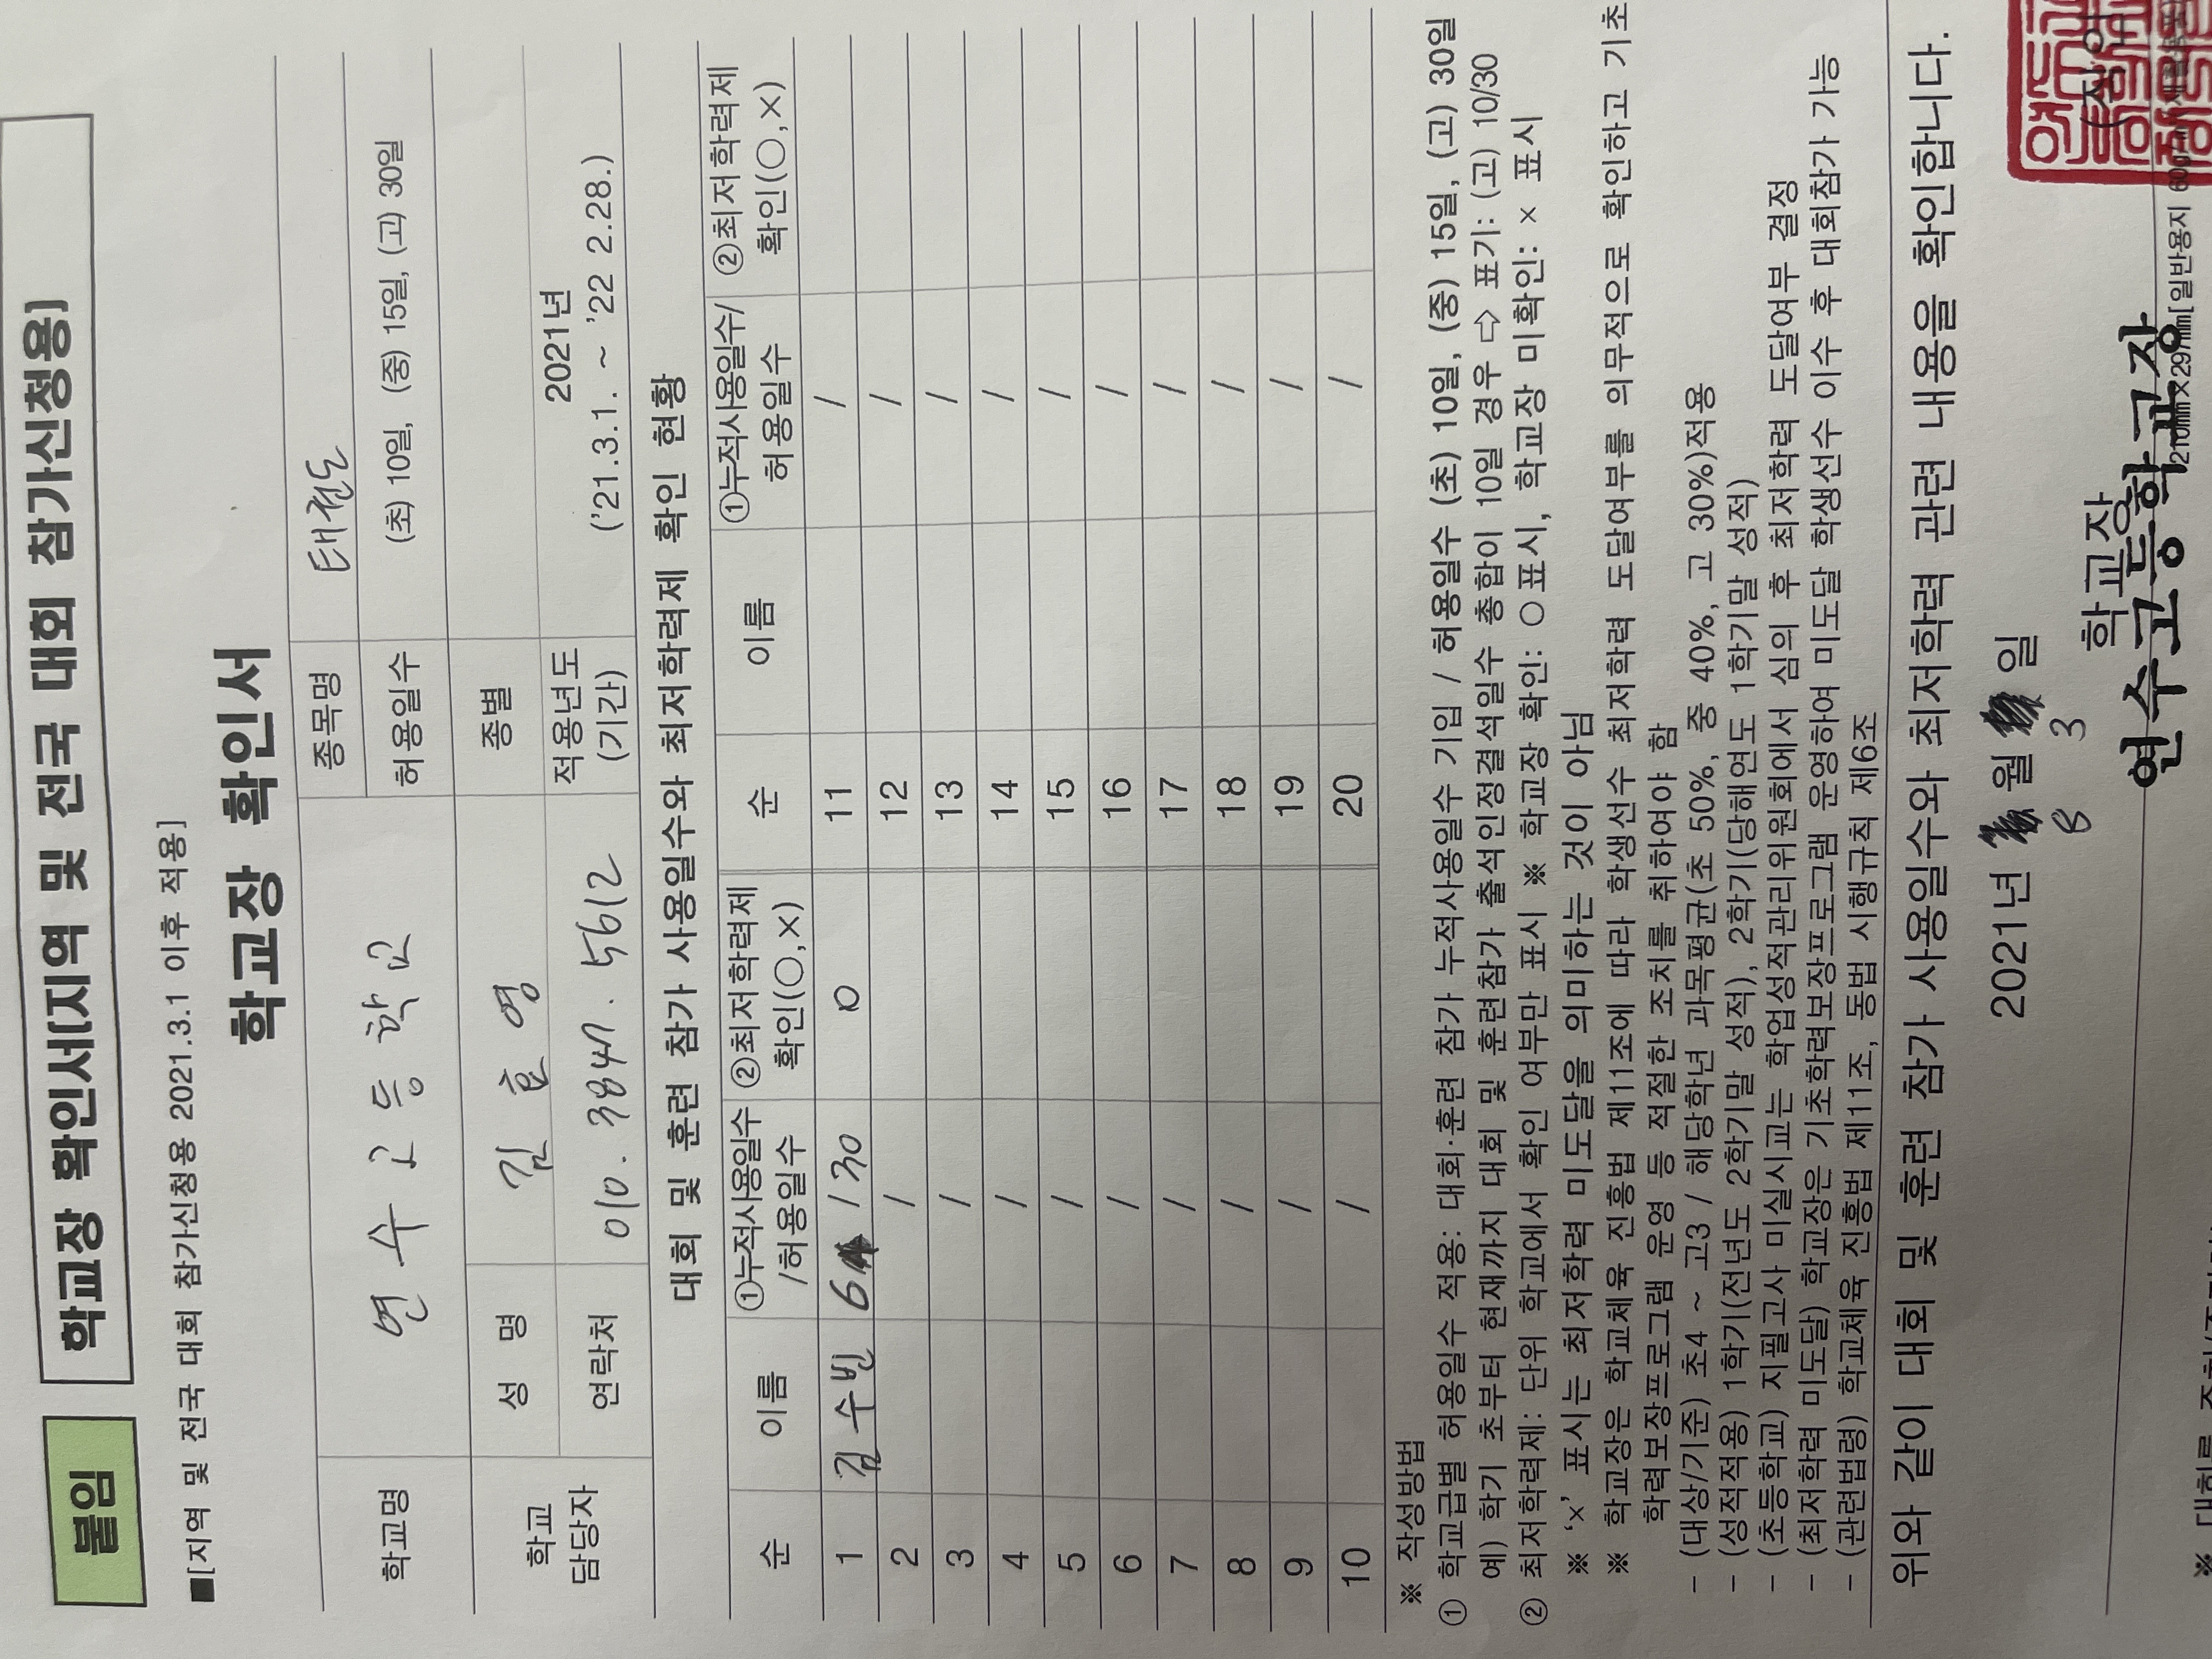 붙임
학교장 확인서[지역 및 전국 대회 참가신청용]
■[지역 및 전국 대회 참가신청용 2021.3.1 이후 적용]
학교장 확인서
학교명 연수고등학교 종목명 태권도
허용일수 (초) 10일, (중) 15일, (고) 30일
학교 담당자 성 명 김 효 영 종별
연락처 010. 3847. 5612 적용년도 (기간) 2021년 ('21.3.1. ~ '22 2.28.)
대회 및 훈련 참가 사용일수와 최저학력제 확인 현황
순 이름 ①누적사용일수 /허용일수 ②최저학력제 확인(○,×) 순 이름 ①누적사용일수/ 허용일수 ②최저학력제 확인(○,×)
1 김수빈 6 / 30 O 11 /
2 / 12 /
3 / 13 /
4 / 14 /
5 / 15 /
6 / 16 /
7 / 17 /
8 / 18 /
9 / 19 /
10 / 20 /
※ 작성방법
① 학교급별 허용일수 적용: 대회·훈련 참가 누적사용일수 기입 / 허용일수 (초) 10일, (중) 15일, (고) 30일
예) 학기 초부터 현재까지 대회 및 훈련참가 출석인정결석일수 총합이 10일 경우 ⇨ 표기: (고) 10/30
② 최저학력제: 단위 학교에서 확인 여부만 표시 ※ 학교장 확인: ○표시, 학교장 미확인: × 표시
※ '×' 표시는 최저학력 미도달을 의미하는 것이 아님
※ 학교장은 학교체육 진흥법 제11조에 따라 학생선수 최저학력 도달여부를 의무적으로 확인하고 기초
학력보장프로그램 운영 등 적절한 조치를 취하여야 함
- (대상/기준) 초4 ~ 고3 / 해당학년 과목평균(초 50%, 중 40%, 고 30%)적용
- (성적적용) 1학기(전년도 2학기말 성적), 2학기(당해연도 1학기말 성적)
- (초등학교) 지필고사 미실시교는 학업성적관리위원회에서 심의 후 최저학력 도달여부 결정
- (최저학력 미도달) 학교장은 기초학력보장프로그램 운영하여 미도달 학생선수 이수 후 대회참가 가능
- (관련법령) 학교체육 진흥법 제11조, 동법 시행규칙 제6조
위와 같이 대회 및 훈련 참가 사용일수와 최저학력 관련 내용을 확인합니다.
2021년 8 월 3 일
학교장 (직인)
연수고등학교장
210㎜×297㎜[일반용지